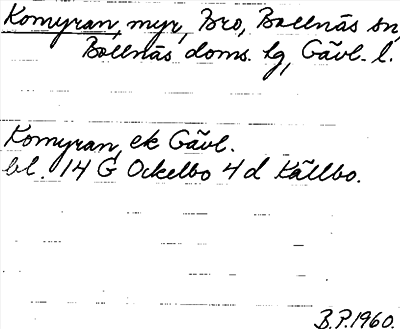 Komyran, myr, Bro, Bollnäs sn,
Bollnäs doms. hg, Gävl. l.
Komyran, ek Gävl.
bl. 14 G Ockelbo 4 d Källbo.
B.P.1960.